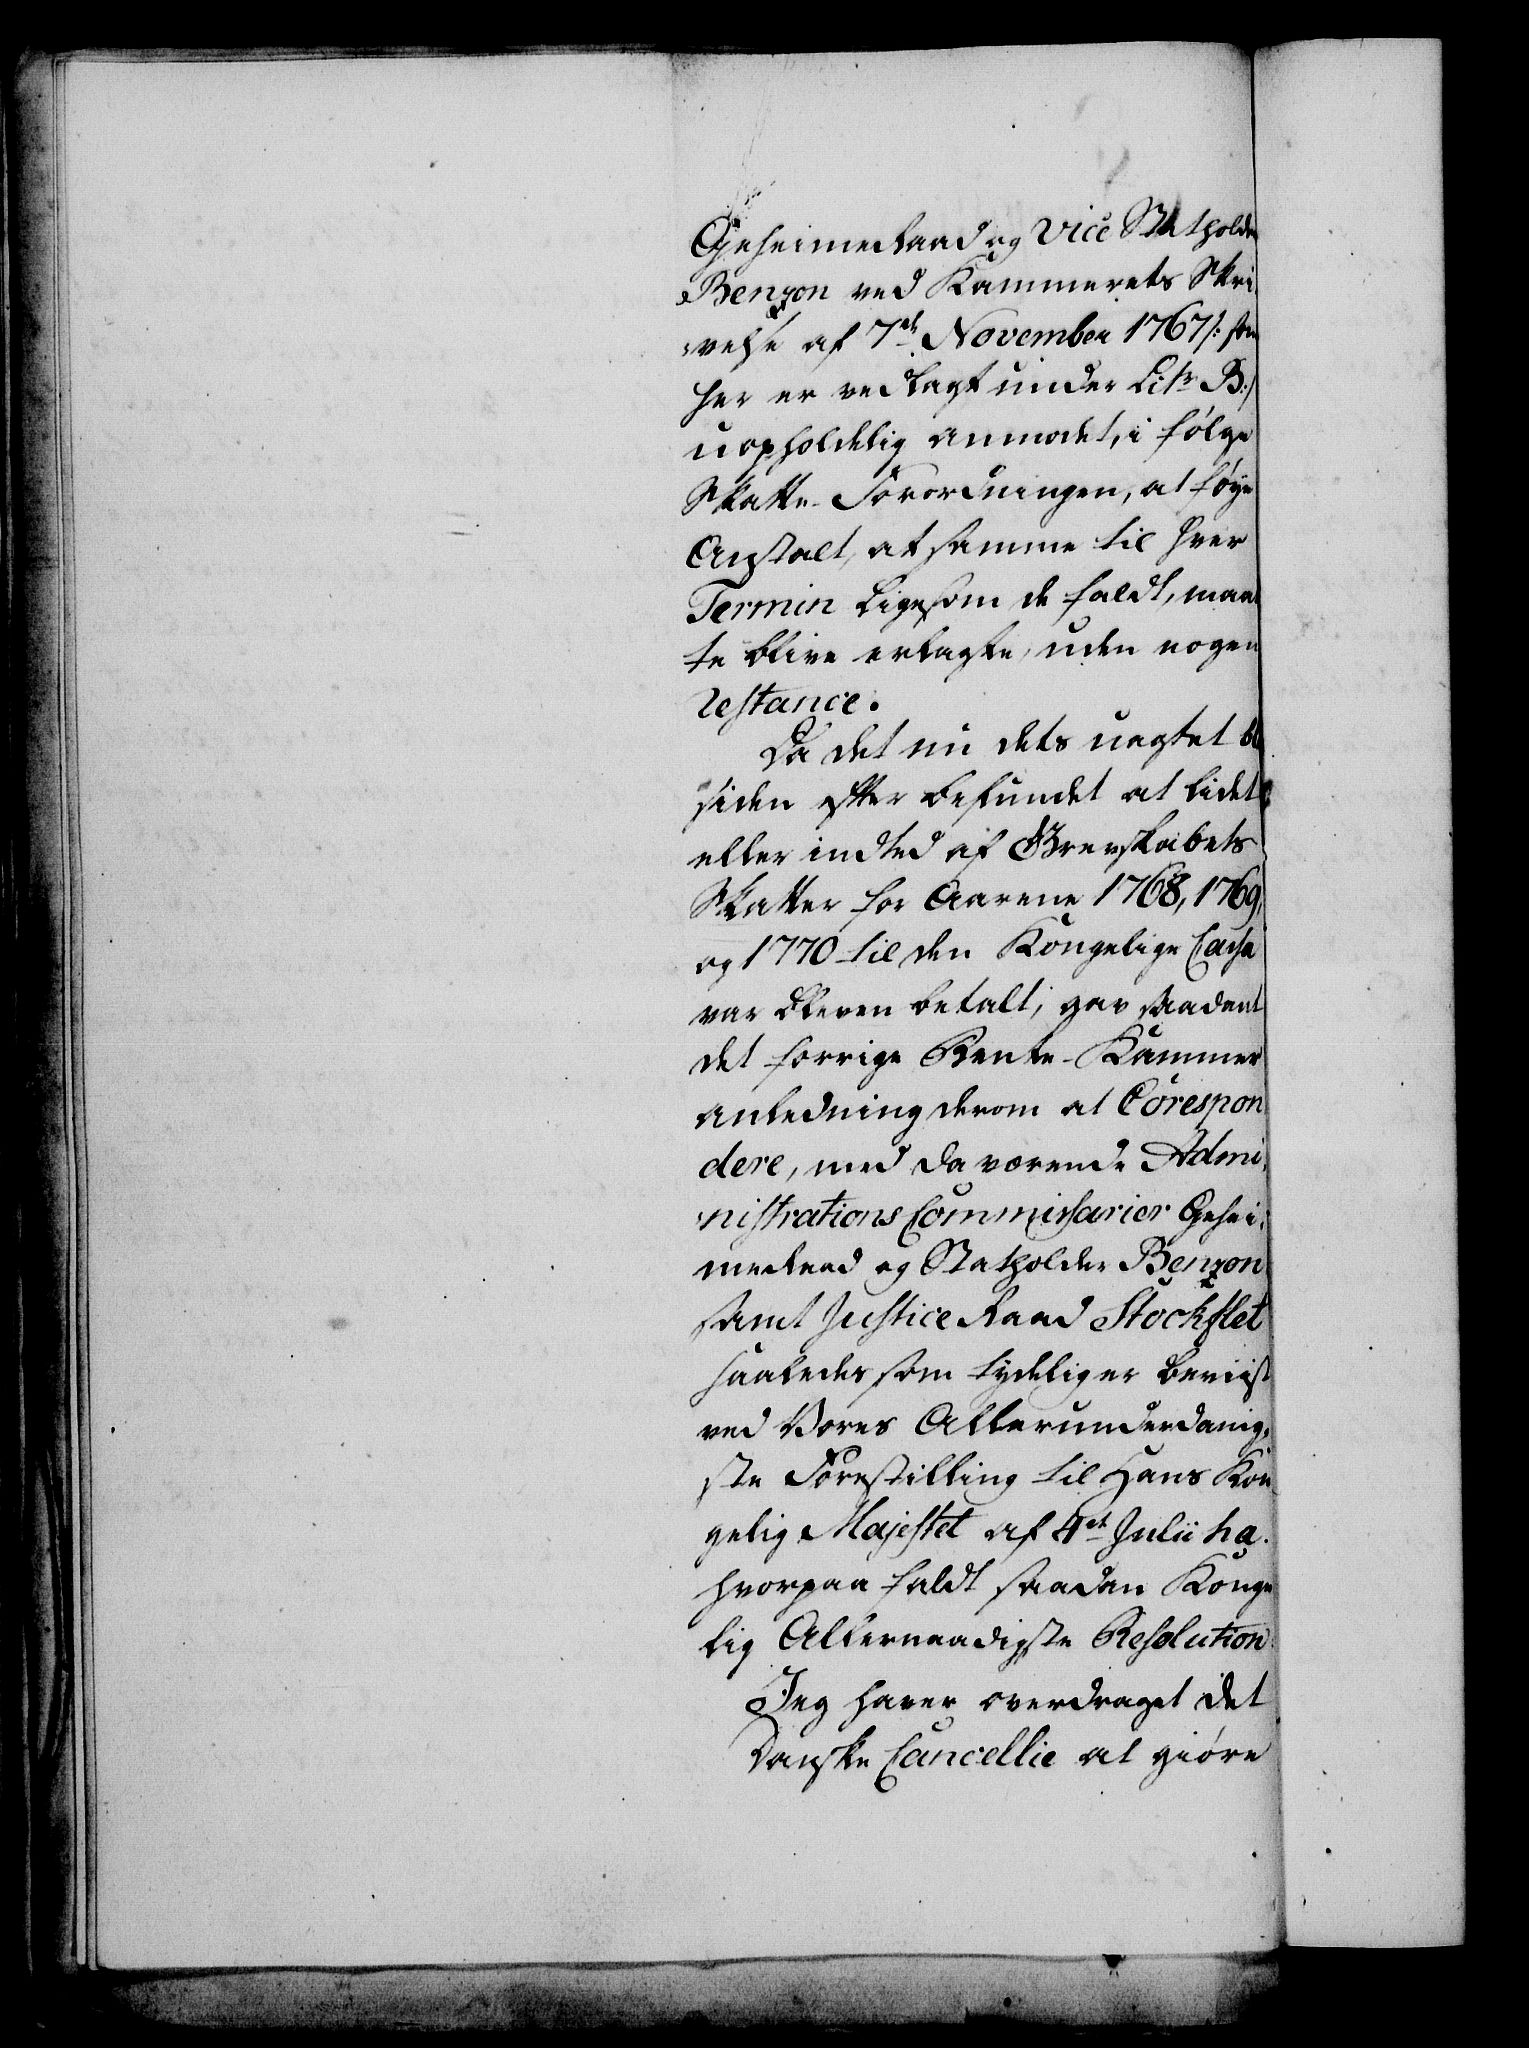 Geheimeraad og Vice Statholder
Benzon ved Kammerets Skri
velse af 7de November 1767 /: som
her er vedlagt under Litr B:/
uopholdelig anmodet, i følge
Skatte-Forordningen, at føye
Anstalt, at samme til hver
Termin ligesom de faldt, maat
te blive erlagte, uden nogen
restance.
Da det nu dets uagtet bl
siden efter befundet at lidet
eller indted af Grevskabets
Skatter for Aarene 1768, 1769,
og 1770 til den Kongelige Cassa
var bleven betalt, gav saadant
det forrige Rente-Kammer
anledning derom at Corespon
dere, med da værende Admi,
nistrations Commissarier Gehei,
meraad og Statholder Benzon
samt Justice Raad Stockflet
saaledes som tydeliger beviist
ved Vores Allerunderdanig,
ste Forestilling til Hans Kon
gelig Majestet af 4de Julii h.a.
hvorpaa faldt saadan Konge
lig Allernaadigste Resolution:
Jeg haver overdraget det
Danske Cancellie at giøre